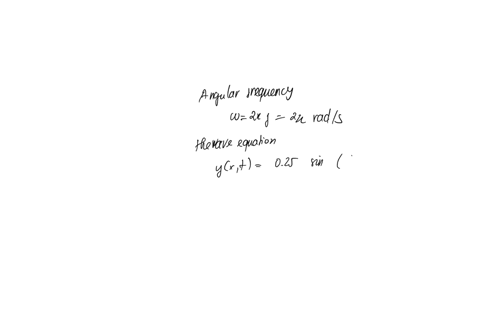 Angular frequency
ω = 2π f = 2π rad/s
the wave equation
y(x,t) = 0.25 sin (